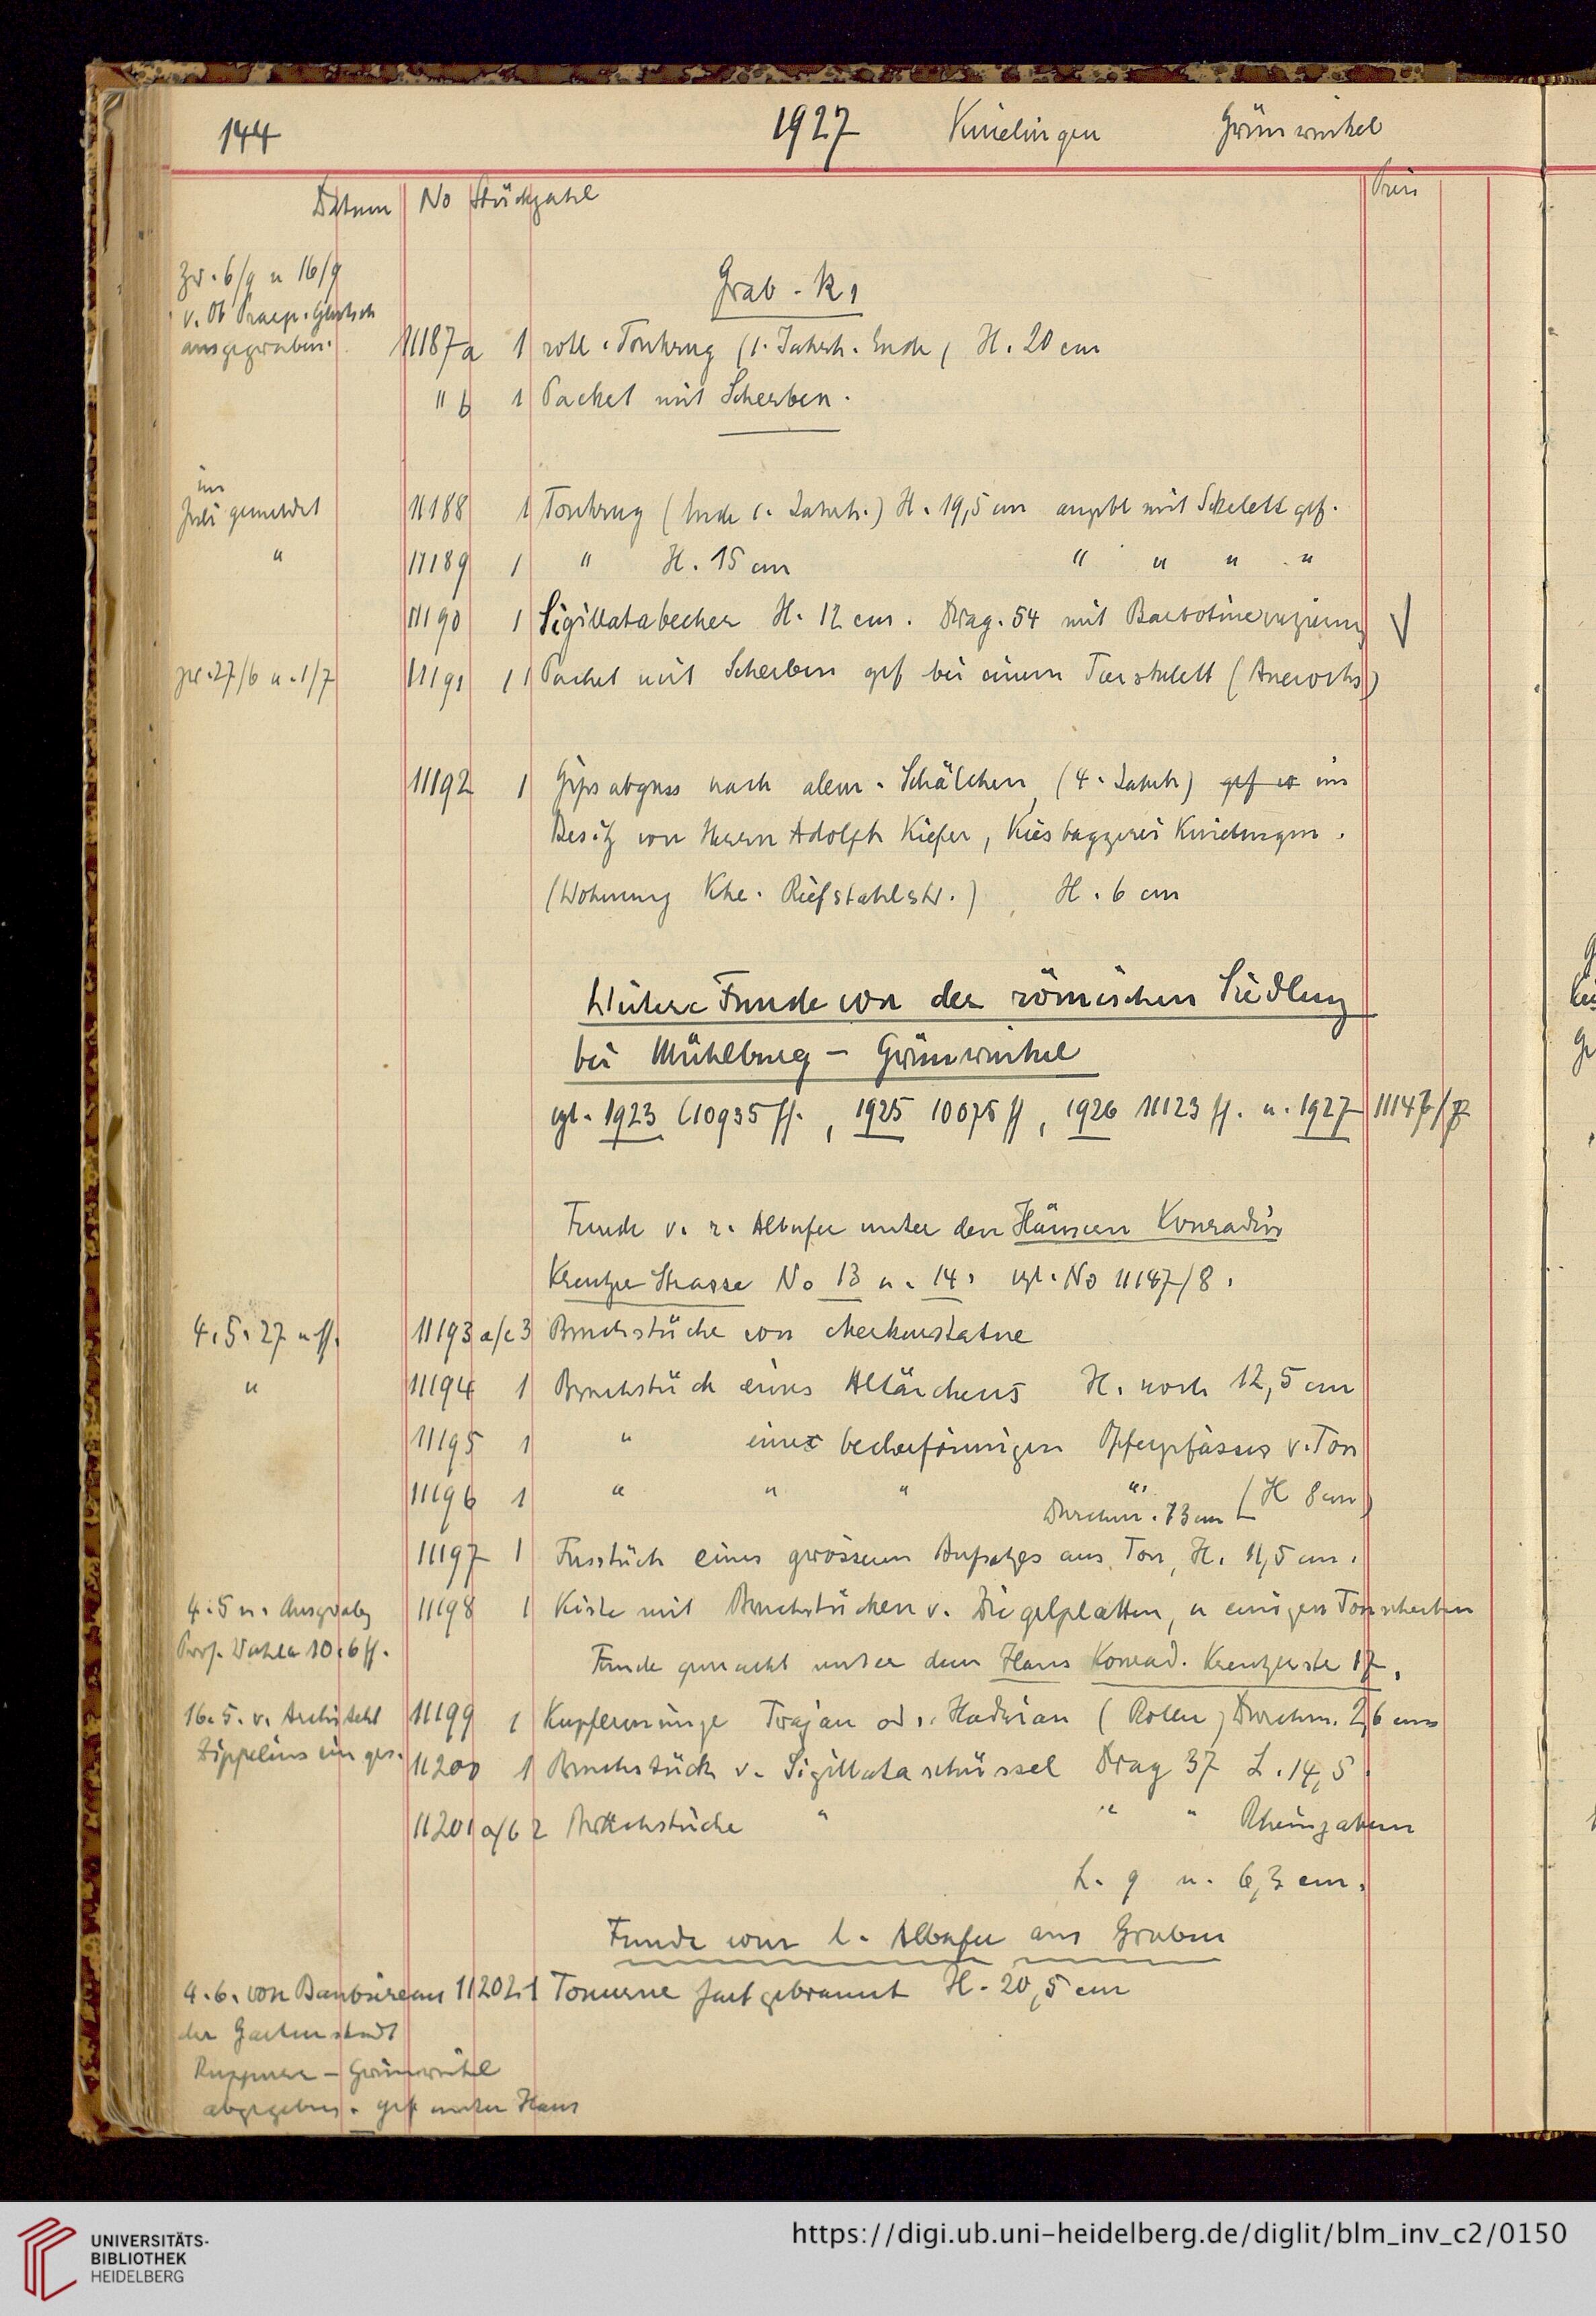 144 1927 Knielingen Grünwinkel
Datum No Stückzahl Preis
zw. 6/9 u 16/9
v. Ob Praep.
ausgegraben.
Grab - K1
11187a 1 rötl. Tonkrug (1. Jahrh. Ende, H. 20 cm
" b 1 Packet mit Scherben.
im
Juli gemeldet 11188 1 Tonkrug (Ende 1. Jahrh.) H. 19,5 cm angebl mit Skelett gef.
" 11189 1 " H. 15 cm " " " "
11190 1 Sigillatabecher H. 12 cm. Drag. 54 mit Barbotineverzierung
zw. 27/6 u. 1/7 11191 1 Packet mit Scherben gef bei einem Tierskelett (Auerochs)
11192 1 Gipsabguss nach alem. Schälchen, (4. Jahrh) gef im
Besitz von Herrn Adolph Kiefer, Kiesbaggerei Knielingen.
(Wohnung Khe. Riefstahlstr.), H. 6 cm
Weitere Funde von der römischen Siedlung
bei Mühlburg – Grünwinkel
vgl. 1923 (10935 ff., 1925 10075 ff, 1926 11123 ff. u. 1927 11147/
Funde v. r. Albufer unter den Häusern Konradin
Kreutzer Strasse No 13 u. 14. vgl. No 11147/8.
4.5.27 u ff. 11193 a/c 3 Bruchstücke von Merkurstatue
" 11194 1 Bruchstück eines Altärchens H. noch 12,5 cm
11195 1 " eines becherförmigen Opfergefässes v. Ton
11196 1 " " " " (H 8 cm)
Durchm. 13 cm
11197 1 Fusstück eines grossem Aufsatzes aus Ton, H. 11,5 cm.
4.5 u. Ausgrabg 11198 1 Kiste mit Bruchstücken v. Ziegelplatten, u einigen Tonscherben
Prof. Wahle 10.6 ff.
Funde gemacht unter dem Haus Konrad. Kreutzerstr 17.
16.5. v. Architekt 11199 1 Kupfermünze Trajan od. Hadrian (Roller) Durchm. 2,6 cm
Zippelius ein ges. 11200 1 Bruchstück v. Sigillataschüssel Drag 37 L. 14,5.
11201 a/b 2 Bruchstücke " " " Rheinzabern
L. 9 u. 6,3 cm.
Funde vom l. Albufer aus Gruben
4.6. von Baubüreau 11202 1 Tonurne hartgebrannt H. 20,5 cm
der Gartenstadt
Rüppurr – Grünwinkel
abgegeben. gef unter Haus
UNIVERSITÄTS-
BIBLIOTHEK
HEIDELBERG
https://digi.ub.uni-heidelberg.de/diglit/blm_inv_c2/0150